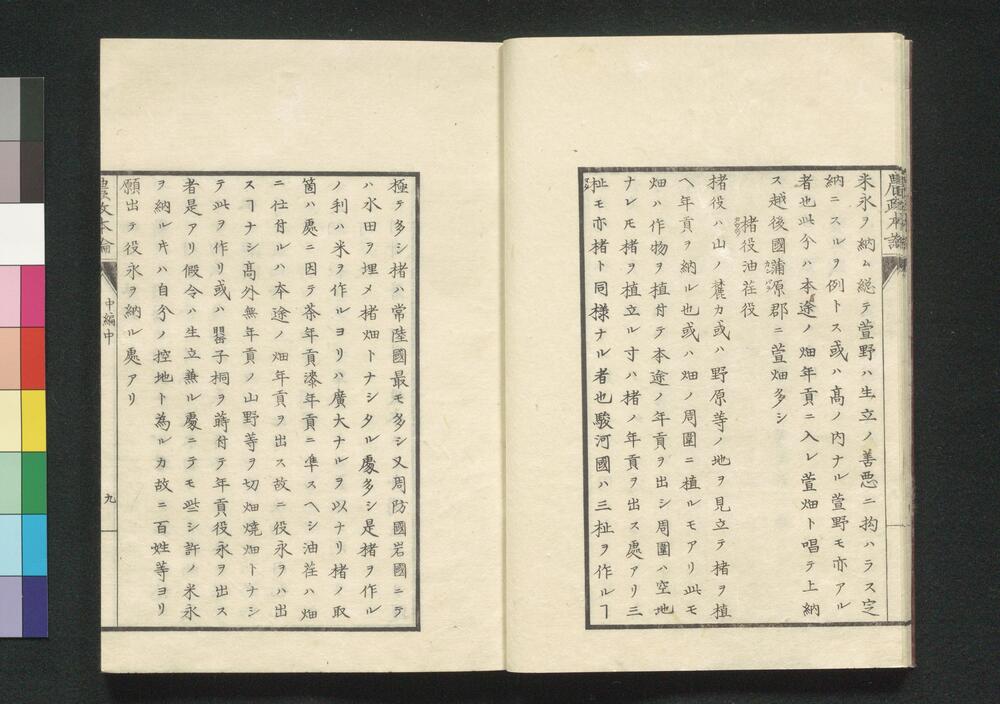 農政本論
米永ヲ納ム総テ萱野ハ生立ノ善悪ニ拘ハラス定
納ニスルヲ例トス或ハ高ノ内ナル萱野モ亦アル
者也此分ハ本途ノ畑年貢ニ入レ萱畑ト唱テ上納
ス越後國蒲原郡ニ萱畑多シ
楮役油荏役
楮役ハ山ノ麓カ或ハ野原等ノ地ヲ見立テ楮ヲ植
ヘ年貢ヲ納ル也或ハ畑ノ周圍ニ植ルモアリ此モ
畑ハ作物ヲ植付テ本途ノ年貢ヲ出シ周圍ハ空地
ナレモ楮ヲ植立ル寸ハ楮ノ年貢ヲ出ス處アリ三
椏モ亦楮ト同様ナル者也駿河國ハ三椏ヲ作ルヿ
極テ多シ楮ハ常陸國最モ多シ又周防國岩國ニテ
ハ水田ヲ埋メ楮畑トナシタル處多シ是楮ヲ作ル
ノ利ハ米ヲ作ルヨリハ廣大ナルヲ以ナリ楮ノ取
箇ハ處ニ因テ茶年貢漆年貢ニ凖スヘシ油荏ハ畑
ニ仕付ルハ本途ノ畑年貢ヲ出ス故ニ役永ヲハ出
スヿナシ高外無年貢ノ山野等ヲ切畑焼畑トナシ
テ此ヲ作リ或ハ罌子桐ヲ蒔付テ年貢役永ヲ出ス
者是アリ假令ハ生立兼ル處ニテモ些シ許ノ米永
ヲ納ルキハ自分ノ控地ト為ルカ故ニ百姓等ヨリ
願出テ役永ヲ納ル處アリ
農政本論
中編中
九